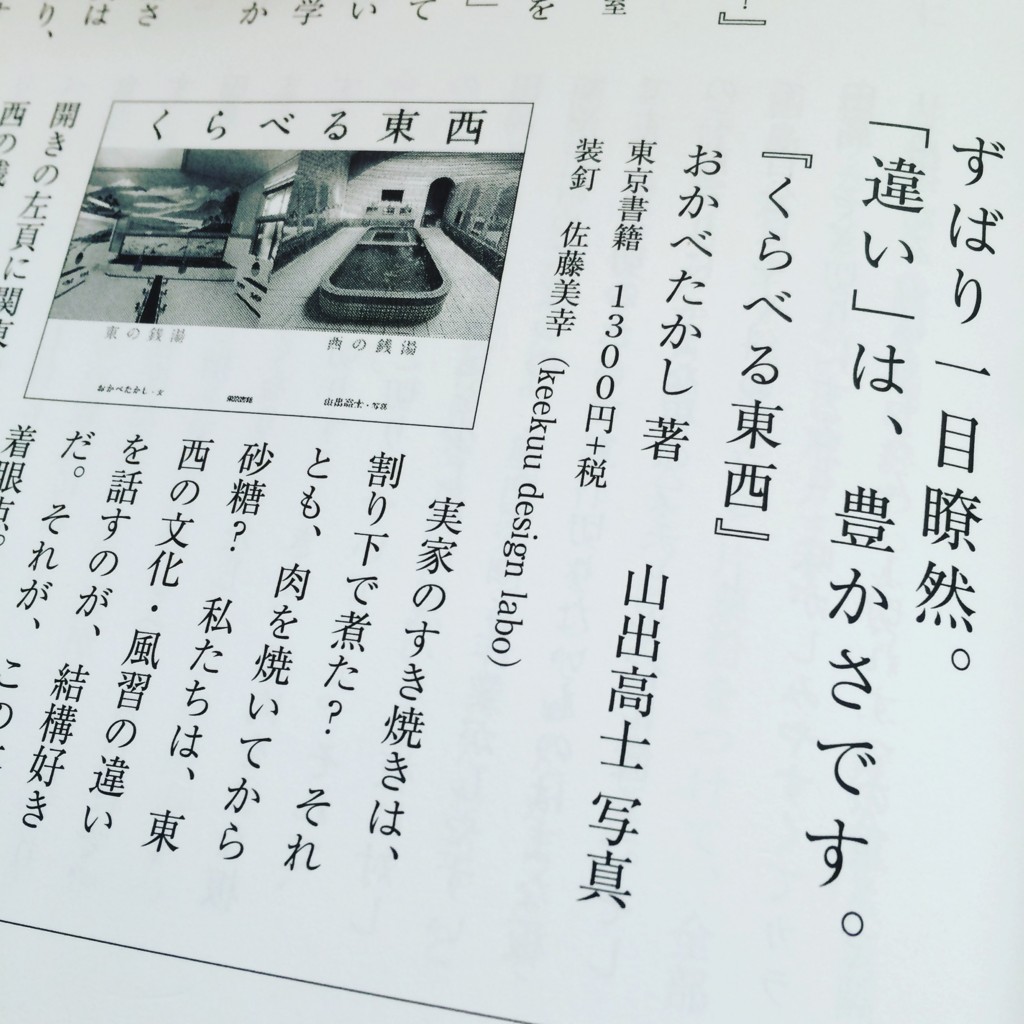 ずばり一目瞭然。
「違い」は、豊かさです。
『くらべる東西』
おかべたかし 著　山出高士 写真
東京書籍　1300円＋税
装釘　佐藤美幸（keekuu design labo）
くらべる東西
東の銭湯
西の銭湯
おかべたかし・文
東京書籍
山出高士・写真
実家のすき焼きは、
割り下で煮た？　それ
とも、肉を焼いてから
砂糖？　私たちは、東
西の文化・風習の違い
を話すのが、結構好き
だ。それが、この
着眼点。
開きの左頁に関東
西の銭